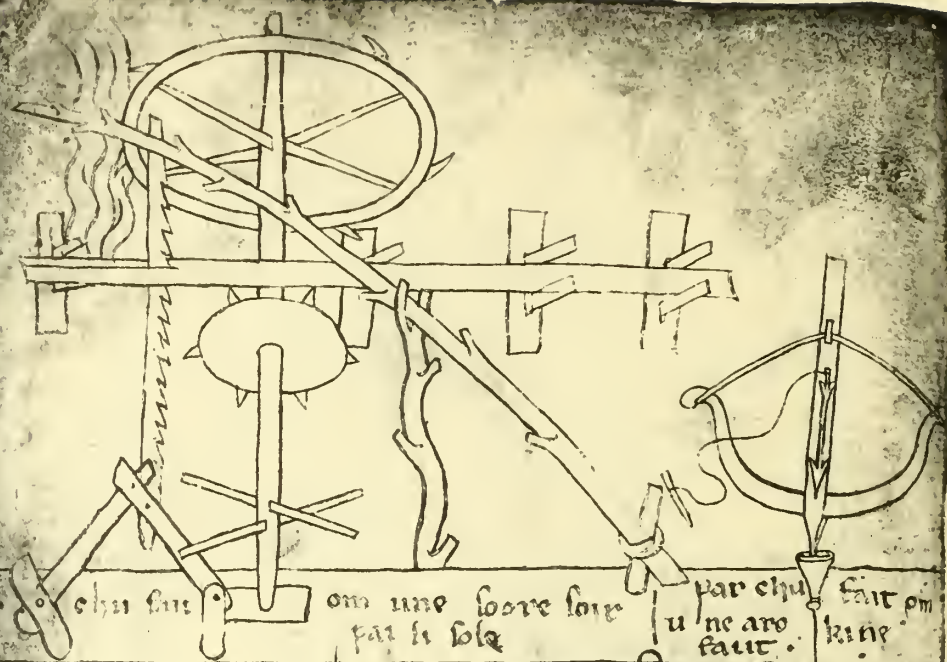 chu fait om une soore soir
par li sole
par chu fait om
u ne arc kine
faut .